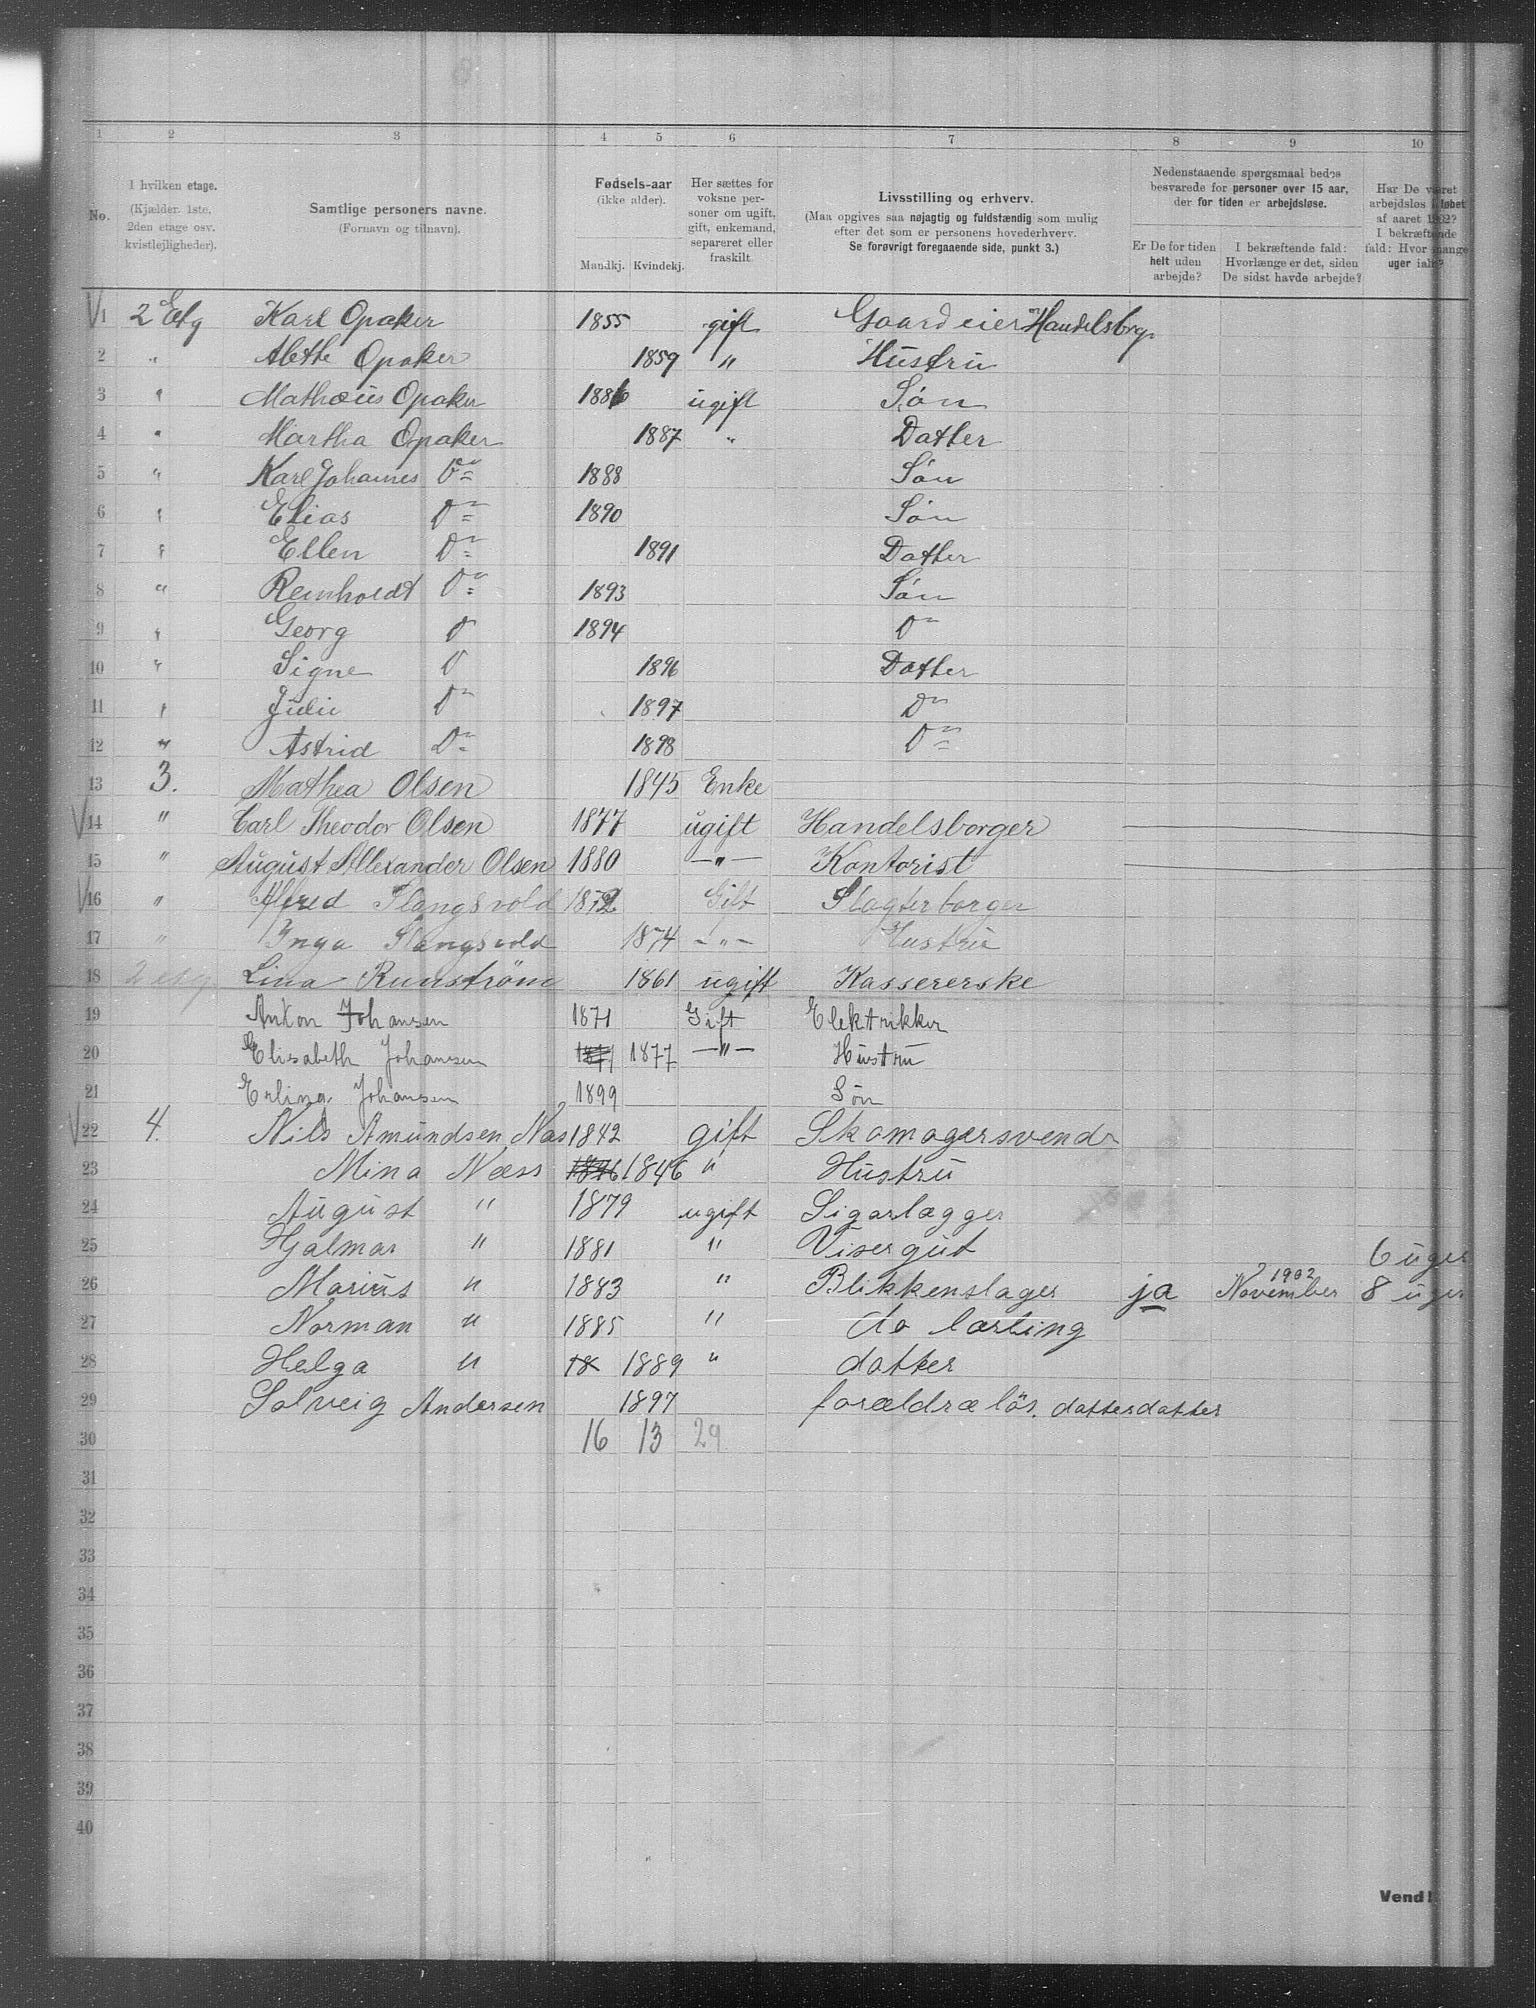 1 2 3 4 5 6 7 8 9 10
No.
I hvilken etage.
(Kjælder. 1ste,
2den etage osv.
kvistlejligheder).
Samtlige personers navne.
(Fornavn og tilnavn).
Fødsels-aar
(ikke alder).
Mandkj. Kvindekj.
Her sættes for
voksne per-
soner om ugift,
gift, enkemand,
separeret eller
fraskilt.
Livsstilling og erhverv.
(Maa opgives saa nøjagtig og fuldstændig som mulig
efter det som er personens hovederhverv.
Se forøvrigt foregaaende side, punkt 3.)
Nedenstaaende spørgsmaal bedes
besvarede for personer over 15 aar,
der for tiden er arbejdsløse.
Er De for tiden
helt uden
arbejde?
I bekræftende fald:
Hvorlænge er det, siden
De sidst havde arbejde?
Har De været
arbejdsløs i løbet
af aaret 1902?
I bekræftende
fald: Hvor mange
uger ialt?
1 2 Etg Karl Opaker 1855 gift Gaardeier Handelsbrg.
2 " Alette Opaker 1859 " Hustru
3 " Mathæus Opaker 1886 ugift Søn
4 " Martha Opaker 1887 " Datter
5 " Karl Johannes Do 1888 Søn
6 " Elias Do 1890 Søn
7 " Ellen Do 1891 Datter
8 " Reinholdt Do 1893 Søn
9 " Georg D 1894 Do
10 " Signe D 1896 Datter
11 " Julie Do 1897 Do
12 " Astrid Do 1898 Do
13 3. Mathea Olsen 1845 Enke
14 " Carl Theodor Olsen 1877 ugift Handelsborger
15 " August Allexander Olsen 1880 —"— Kontorist
16 " Alfred Slangsvold 1872 Gift Slagterborger
17 " Inga Slangsvold 1874 —"— Hustru
18 2 etg Lina Runström 1861 ugift Kassererske
19 Anton Johansen 1871 Gift Elektrikker
20 Elisabeth Johansen 1877 1877 —"— Hustru
21 Erling Johansen 1899 Søn
22 4. Nils Amundsen Næs 1842 gift Skomagersvend
23 Mina Næss 1846 1846 " Hustru
24 August " 1879 ugift Sigarlægger
25 Hjalmar " 1881 " Visergut 6 uger
26 Marius " 1883 " Blikkenslager ja November 1902 8 uger
27 Norman " 1885 " do lærling
28 Helga " 18 1889 " datter
29 Solveig Andersen 1897 forældreløs. datterdatter
30 16 13 29
31
32
33
34
35
36
37
38
39
40
Vend!